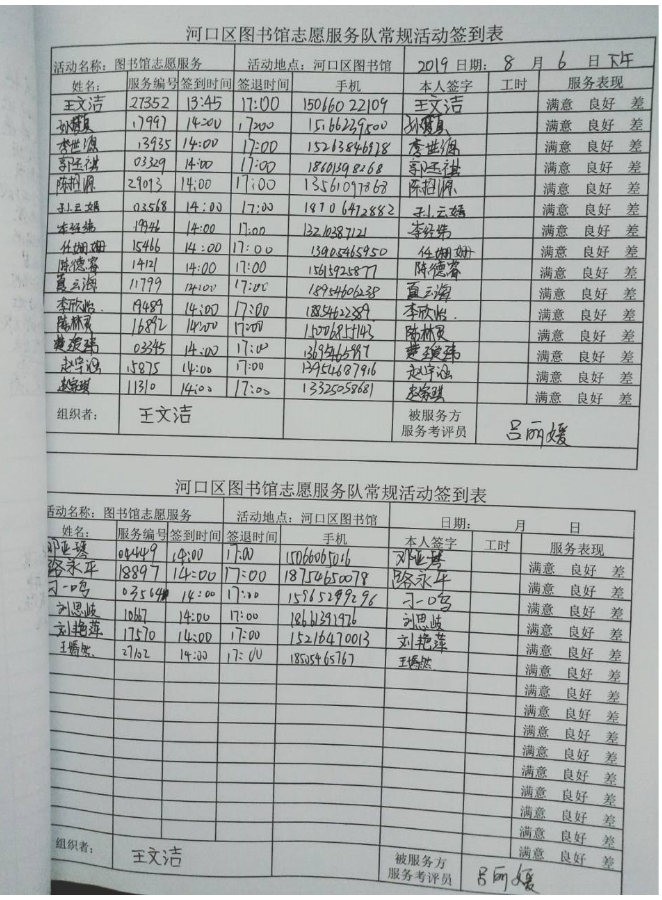 河口区图书馆志愿服务队常规活动签到表
活动名称：图书馆志愿服务 活动地点：河口区图书馆 2019 日期：8 月 6 日 下午
姓名： 服务编号 签到时间 签退时间 手机 本人签字 工时 服务表现
王文洁 27352 13:45 17:00 15066022109 王文洁 满意 良好 差
17997 14:00 1700 15166239500 满意 良好 差
李世源 13935 14:00 17:00 15263846978 李世源 满意 良好 差
03329 14:00 17:00 18601398268 满意 良好 差
29013 14:00 17:00 13561097868 满意 良好 差
孙云嫱 03568 14:00 17:00 18706472882 孙云嫱 满意 良好 差
李经纬 19946 14:00 17:00 13210387121 李经纬 满意 良好 差
任姗姗 15466 14:00 17:00 13905465950 任姗姗 满意 良好 差
陈德睿 14121 14:00 17:00 15615925877 陈德睿 满意 良好 差
夏云海 11799 14:00 17:00 18954606238 夏云海 满意 良好 差
李欣怡 19489 14:00 17:00 李欣怡 满意 良好 差
16892 14:00 17:00 满意 良好 差
03345 14:00 17:00 满意 良好 差
15875 14:00 17:00 13954687916 满意 良好 差
赵家琪 11310 14:00 17:00 13325058681 赵家琪 满意 良好 差
组织者： 王文洁 被服务方 吕丽媛
服务考评员
河口区图书馆志愿服务队常规活动签到表
活动名称：图书馆志愿服务 活动地点：河口区图书馆 日期： 月 日
姓名： 服务编号 签到时间 签退时间 手机 本人签字 工时 服务表现
邓亚琴 14:00 17:00 15066065016 邓亚琴 满意 良好 差
路永平 18897 14:00 17:00 18754650078 路永平 满意 良好 差
刁一鸣 14:00 17:00 15965299296 刁一鸣 满意 良好 差
刘思岐 10667 14:00 17:00 18661391976 刘思岐 满意 良好 差
刘艳萍 17570 14:00 17:00 15216470013 刘艳萍 满意 良好 差
27102 14:00 17:00 18505465767 满意 良好 差
满意 良好 差
满意 良好 差
满意 良好 差
满意 良好 差
满意 良好 差
满意 良好 差
满意 良好 差
满意 良好 差
满意 良好 差
组织者： 王文洁 被服务方 吕丽媛
服务考评员